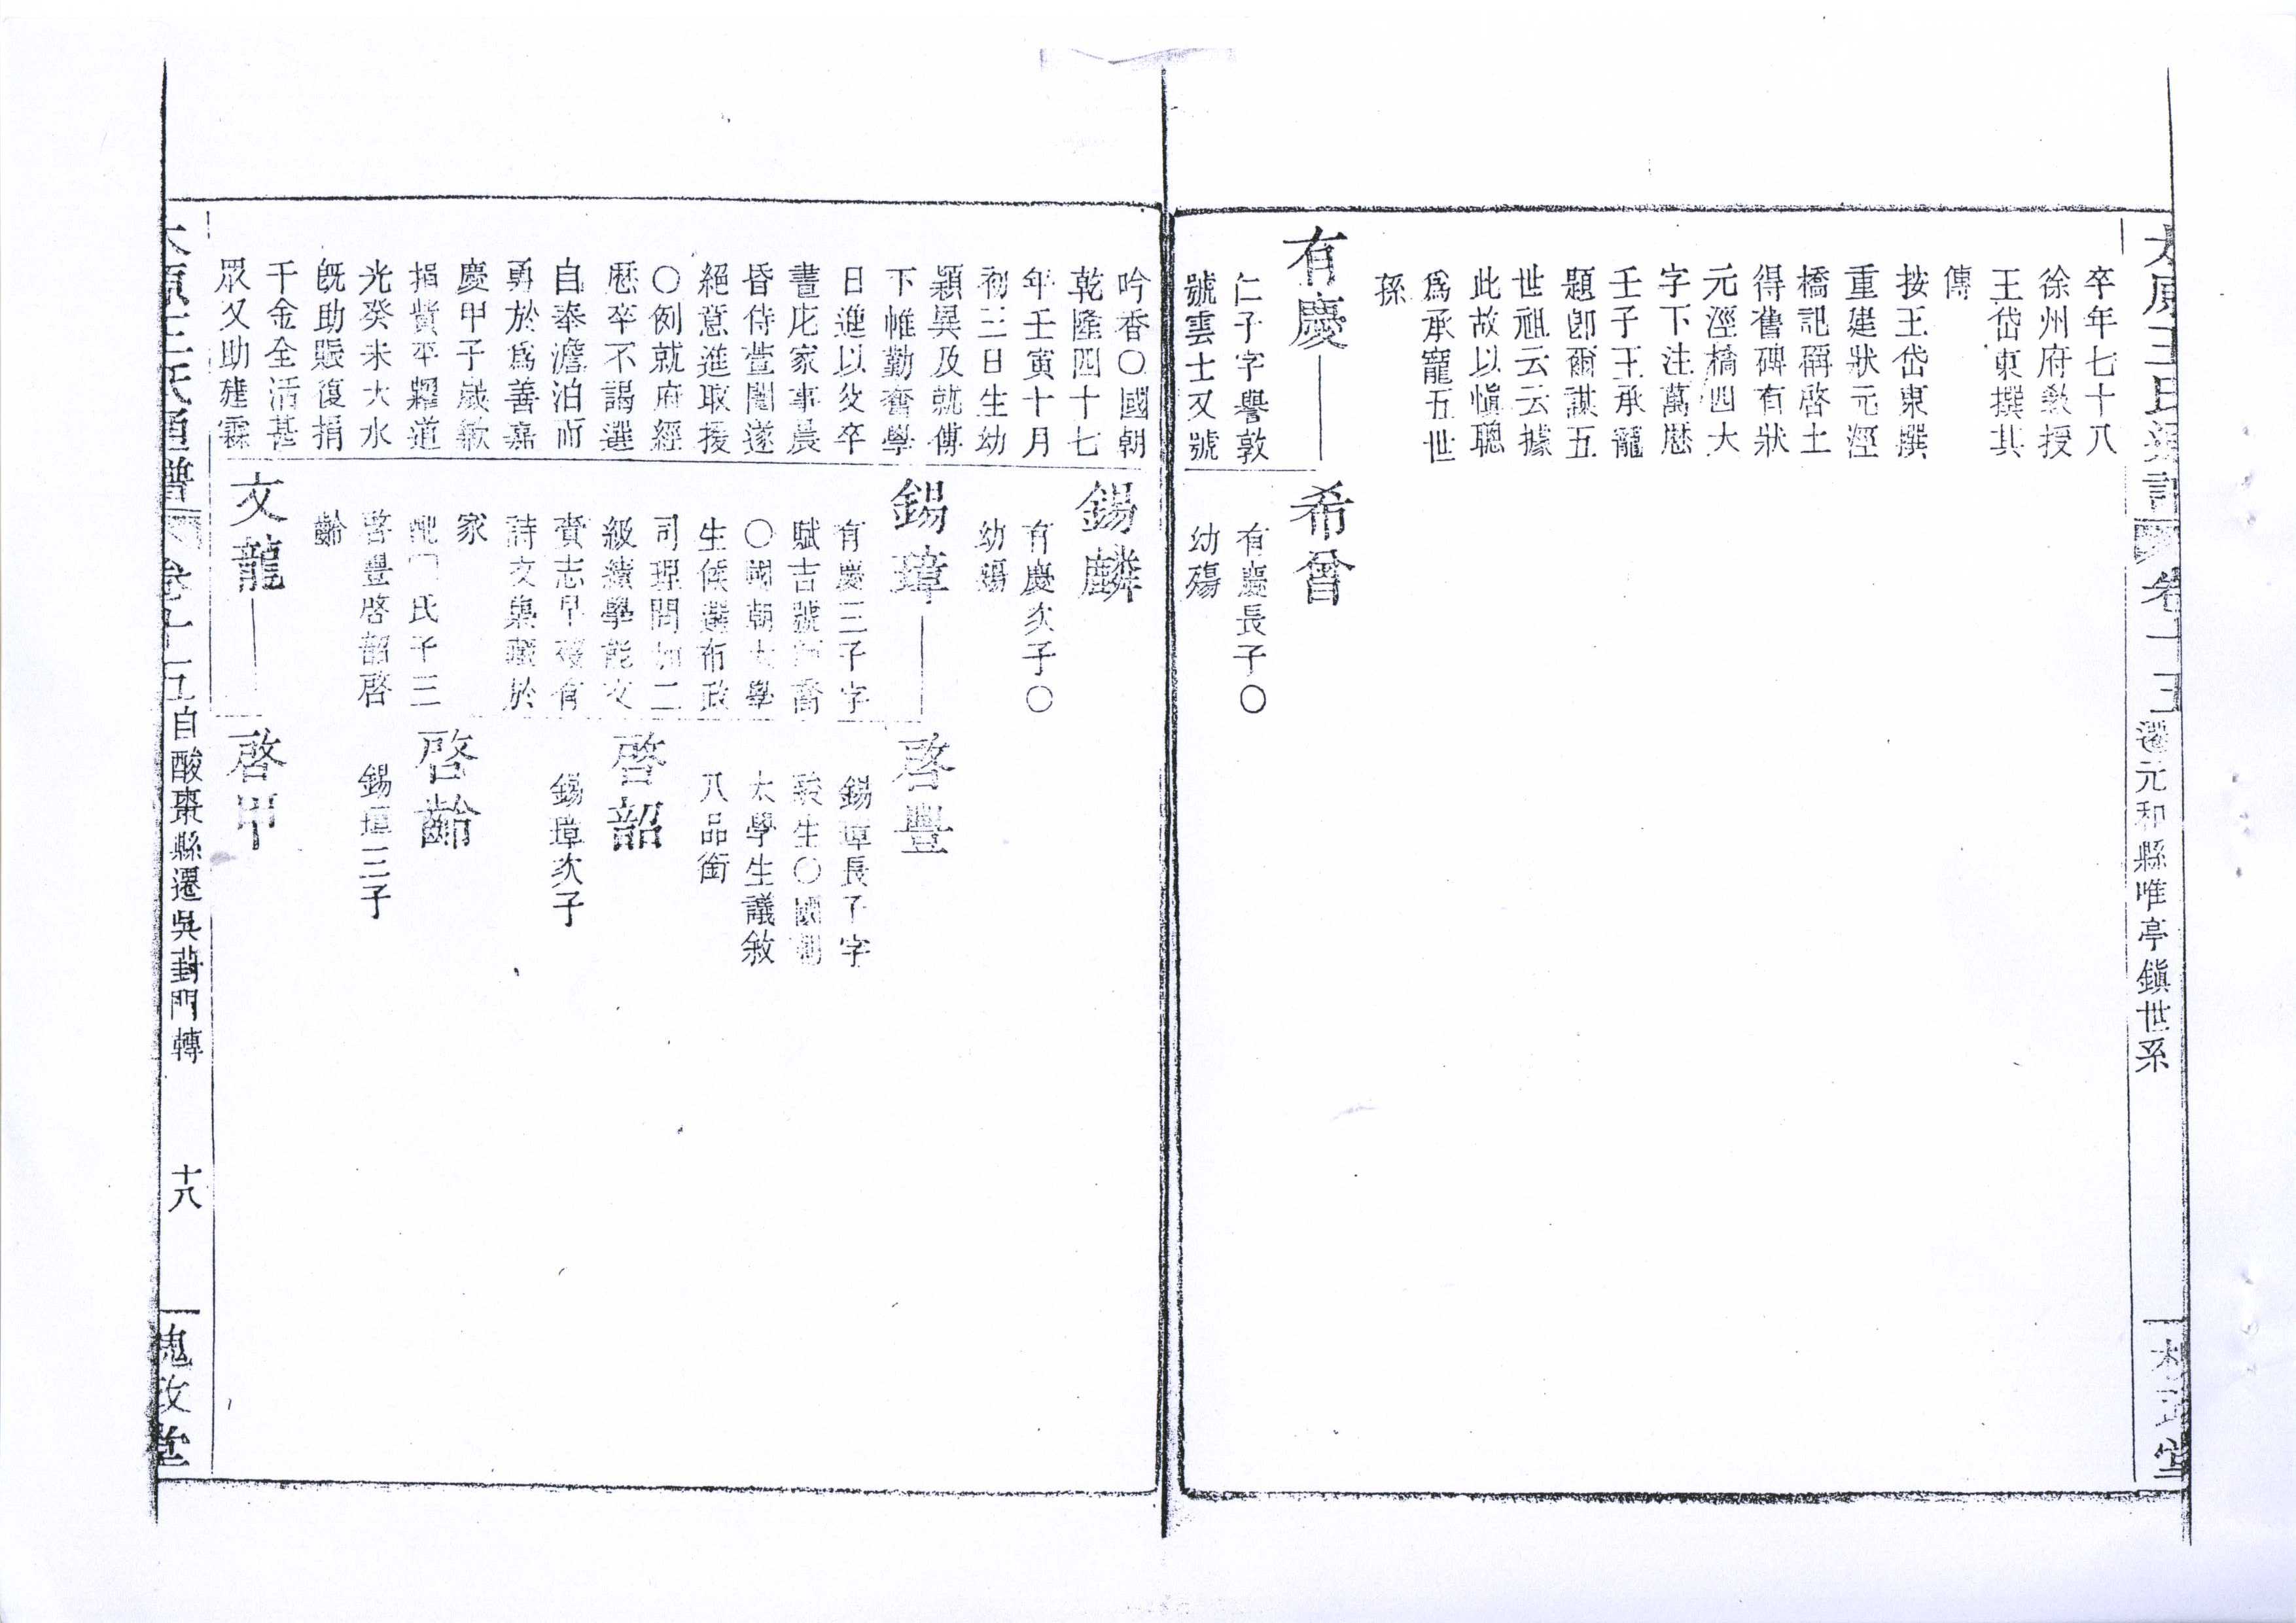 卷十五
遷元和縣唯亭鎮世系
卒年七十八
徐州府敎授
王岱東撰其
傳
按王岱東撰
重建狀元涇
橋記稱啓土
得舊碑有狀
元涇橋四大
字下注萬厯
壬子王承寵
題卽爾謀五
世祖云云據
此故以愼聰
爲承寵五世
孫
有慶
仁子字譽敦
號雲士又號
希曾
有慶長子〇
幼殤
吟香〇國朝
乾隆四十七
年壬寅十月
初三日生幼
穎異及就傅
下帷勤奮學
日進以父卒
晝庀家事晨
昏侍萱闈遂
絕意進取援
〇例就府經
厯卒不謁選
自奉澹泊而
勇於爲善嘉
慶甲子歲歉
捐貲平糶道
光癸未大水
旣助賑復捐
千金全活甚
眾又助建霖
錫麟
有慶次子〇
幼殤
錫璋
有慶三子字
賦吉號喬
〇國朝太學
生候選布政
司理問加二
級績學能文
賫志早歿有
詩文集藏於
家
配氏子三
啓豐啓韶啓
齡
文龍
啓豐
錫璋長子字
生〇國朝
太學生議敘
八品銜
啓韶
錫璋次子
啓齡
錫璋三子
啓甲
太原王氏通譜
卷十五
自酸棗縣遷吳葑門轉
十八
槐政堂